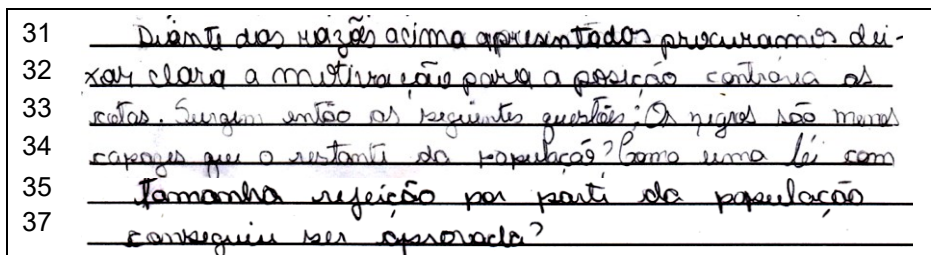 31 Diante das razões acima apresentados procuramos dei-
32 xar clara a motivação para a posição contrária as
33 cotas. Surgem então as seguintes questões: Os negros são menos
34 capazes que o restante da população? Como uma lei com
35 tamanha rejeição por parte da população
37 conseguiu ser aprovada?